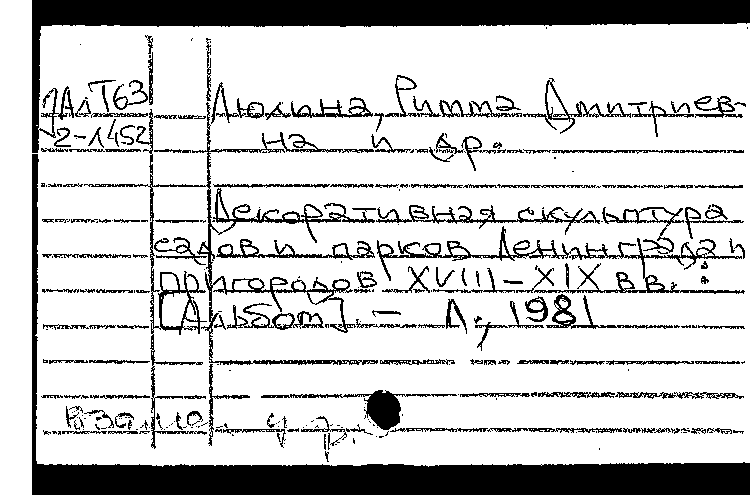 ЗАлТ63
2-1452
Люлина, Римма Дмитриев-
на и др.
Декоративная скульптура
садов и парков Ленинграда и
пригородов XVIII-XIX вв. :
[Альбом]. - Л., 1981